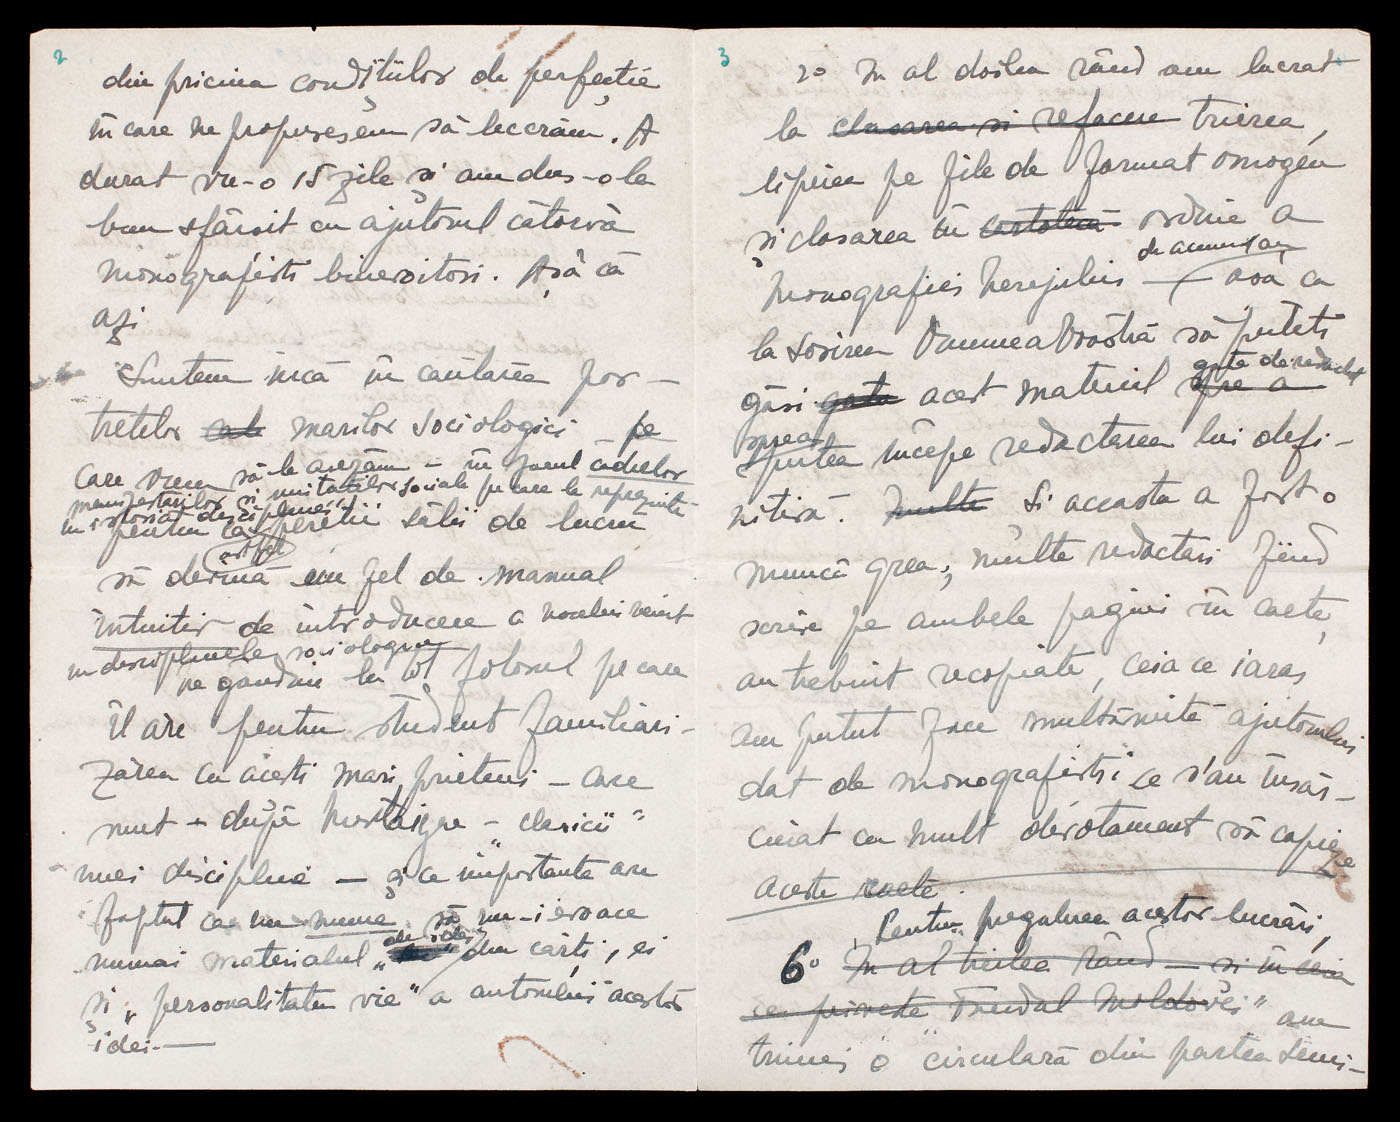 2
din pricina condițiilor de perfecție
în care ne propusesem să lucrăm. A
durat vre-o 15 zile și am dus-o la
bun sfârsit cu ajutorul cătorva
monografisti binevoitori. Așà că
azi
Suntem încă în căutarea por-
tretelor ale marilor sociologici pe
care vrem să le așezăm – în jurul cadrelor
manifestărilor și unitatilor sociale pe care le reprezintă
in istoriat disciplinei
pentru ca pereții sălii de lucru
astfel
să devină un fel de manual
intuitiv de introducere a noului venit
in disciplinele sociologice
ne gandim la tot folosul pe care
îl are pentru student familiari-
zarea cu acesti mari prieteni – care
sunt – după Montaigne – „clasicii"
unei discipline – și ce importante are
faptul ca nu numai să nu-i evoace
numai materialul „de idei" din cărti, ci
și „personalitatea vie" a autorului acestor
idei. —
3
2º In al doilea rând am lucrat
la clasarea si refacere trierea,
lipirea pe file de format omogen
și clasarea în cartotecă ordine a
de acum un an
monografiei Nerejului – asa ca
la sosirea DumneaVoastră să puteti
gata de redactat
găsi gata acest material spre a
spre a
putea începe redactarea lui defi-
nitivă. Multe Si aceasta a fost o
muncă grea; multe redactari fiind
scrise pe ambele pagini în caete,
au trebuit recopiate, ceia ce iaras
am putut face multămită ajutorului
dat de monografisti ce s'au însăr-
cinat cu mult devotament să copieze
aceste caete.
Pentru pregatirea acestor lucrări,
6º In al treilea rând – si în ceia
ce priveste Trendul Moldovei" am
trimes o circulară din partea Semi-